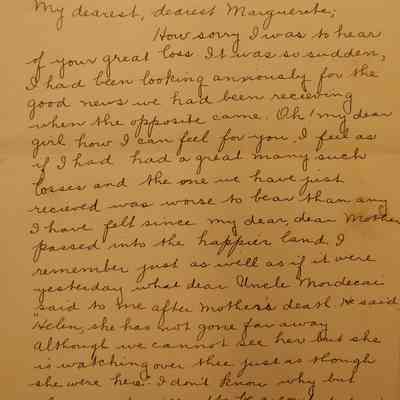 My dearest, dearest Marguerite;
How sorry I was to hear
of your great loss. It was so sudden,
I had been looking anxiously for the
good news we had been recieving
when the opposite came. Oh! my dear
girl how I can feel for you. I feel as
if I had had a great many such
losses and the one we have just
recieved was worse to bear than any
I have felt since my dear, dear Mother
passed into the happier land. I
remember just as well as if it were
yesterday what dear Uncle Mordecai
said to me after Mother's death. He said
"Helen, she has not gone far away
although we cannot see her but she
is watching over thee just as though
she were here." I don't know why but